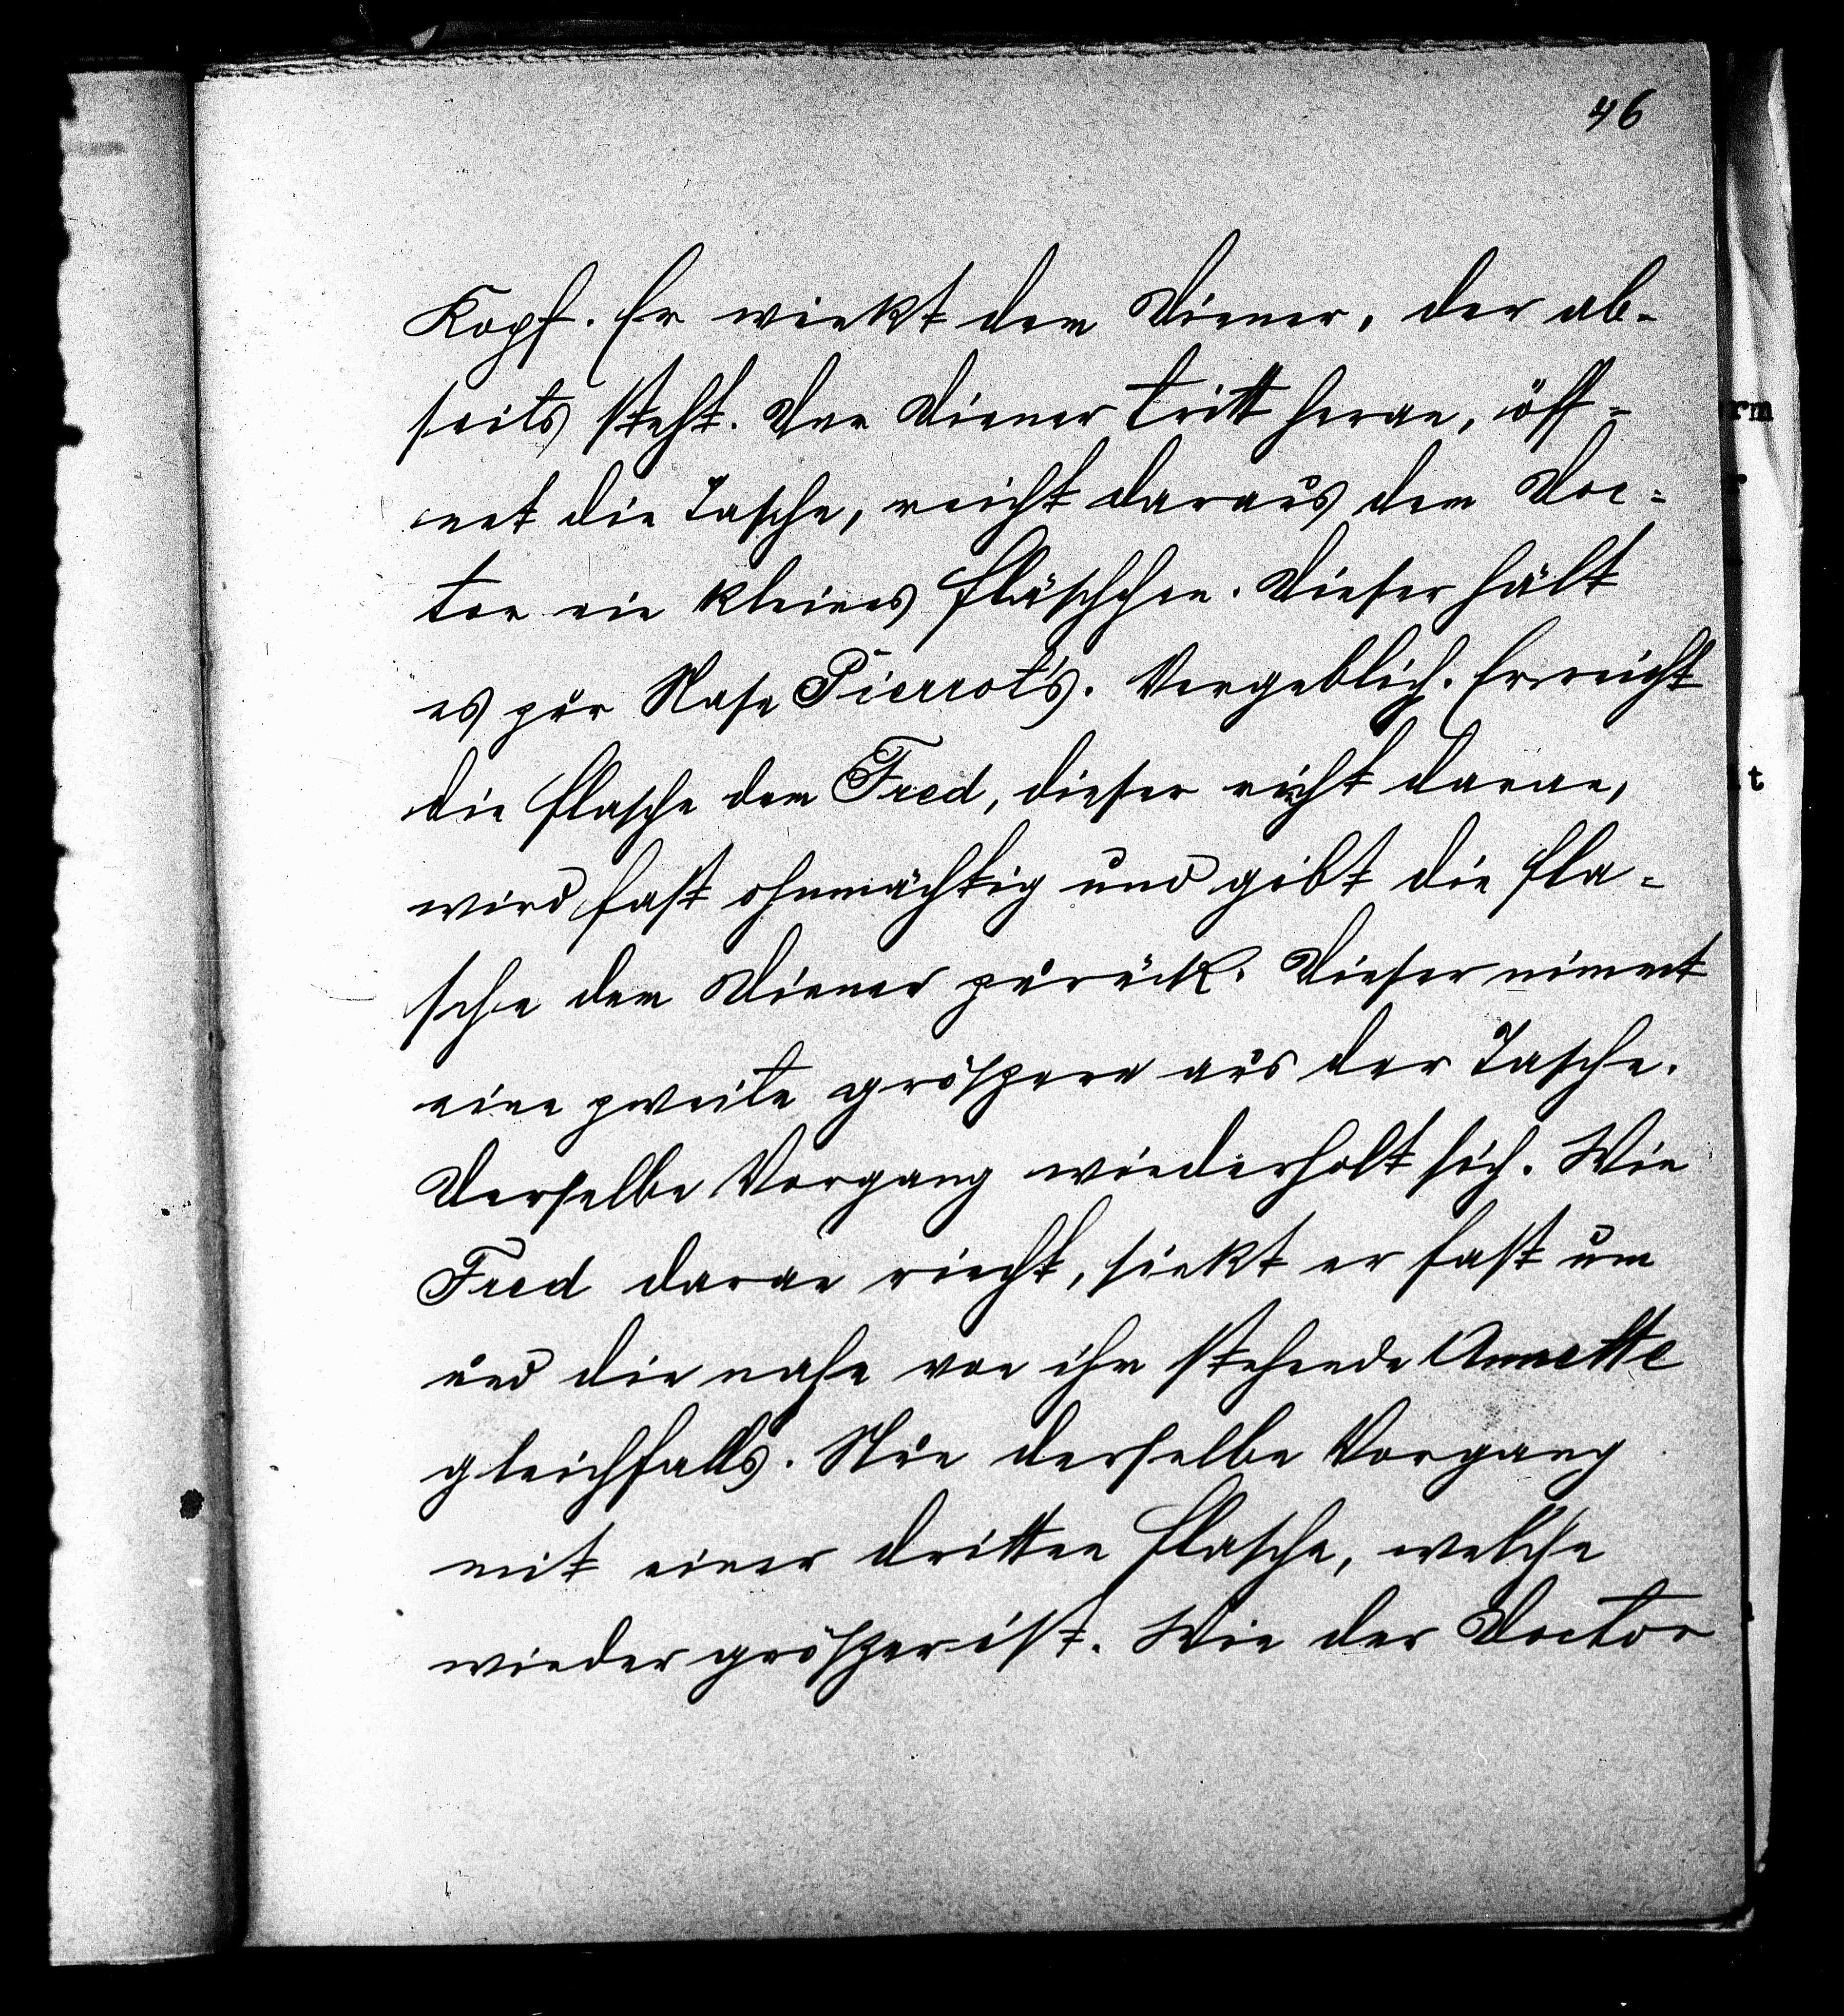 46
Kopf. Er winkt dem Diener, der ab-
seits steht. Der Diener tritt heran, öff-
net die Tasche, reicht daraus dem Doc-
tor ein kleines Fläschchen. Dieser hält
es zur Nase Pierrot's. Vergeblich. Er reicht
die Flasche dem Fred, dieser riecht daran,
wird fast ohnmächtig und gibt die Fla-
sche dem Diener zurück. Dieser nimmt
eine zweite größere aus der Tasche.
Derselbe Vorgang wiederholt sich. Wie
Fred daran riecht, sinkt er fast um
und die nahe von ihm stehende Annette
gleichfalls. Nun derselbe Vorgang
mit einer dritten Flasche, welche
wieder größer ist. Wie der Doctor
rm
r
it